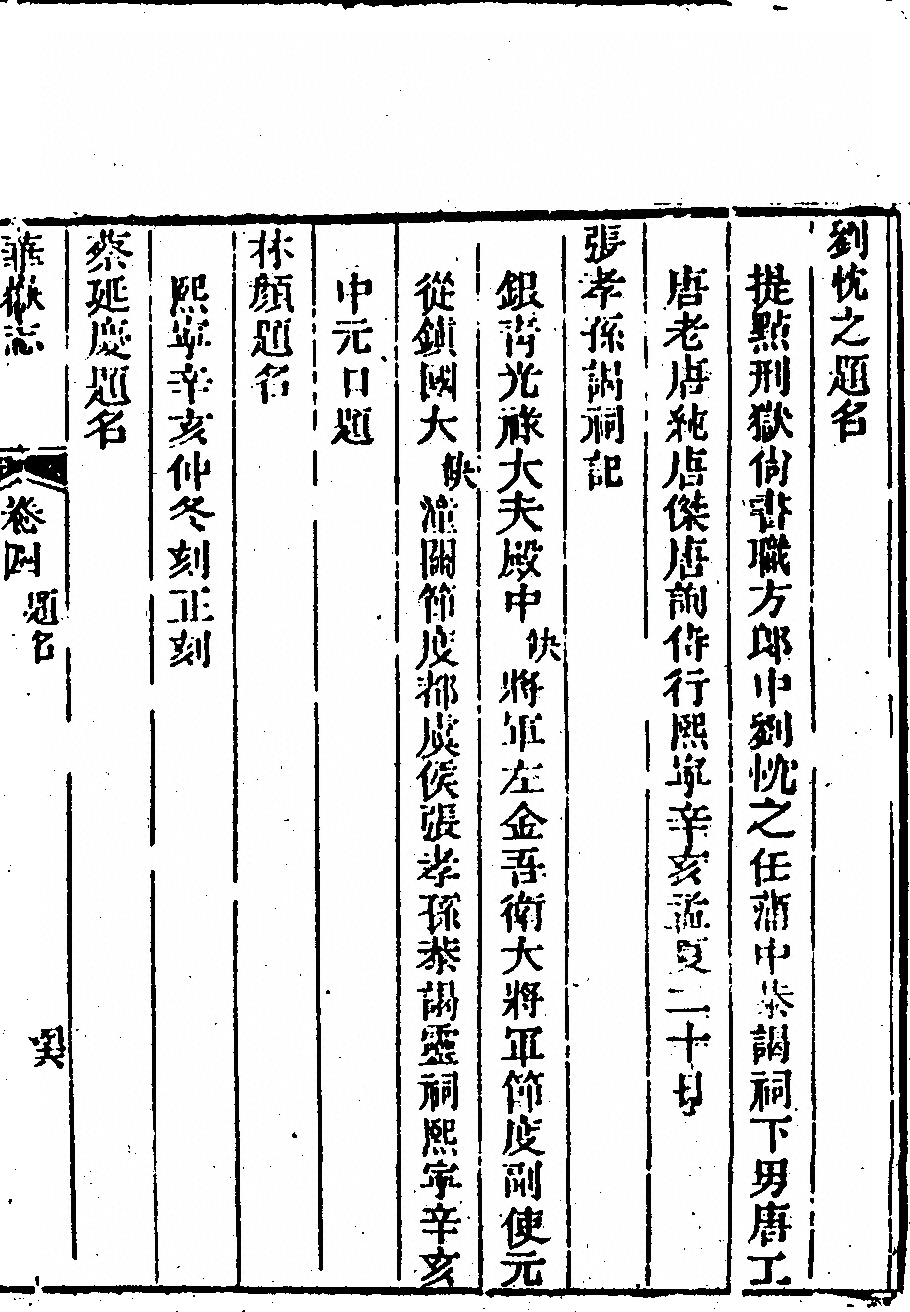 劉忱之題名
提點刑獄尙書職方郎中劉忱之任蒲中恭謁祠下男唐工
唐老唐純唐傑唐詢侍行熙寧辛亥孟夏二十
張孝孫謁祠記
銀靑光祿大夫殿中缺將軍左金吾衛大將軍節度副使元
從鎮國大缺潼關節度都虞侯張孝孫恭謁靈祠熙寧辛亥
中元日題
林顏題名
熙寧辛亥仲冬刻正刻
蔡延慶題名
華嶽志 卷四 題名